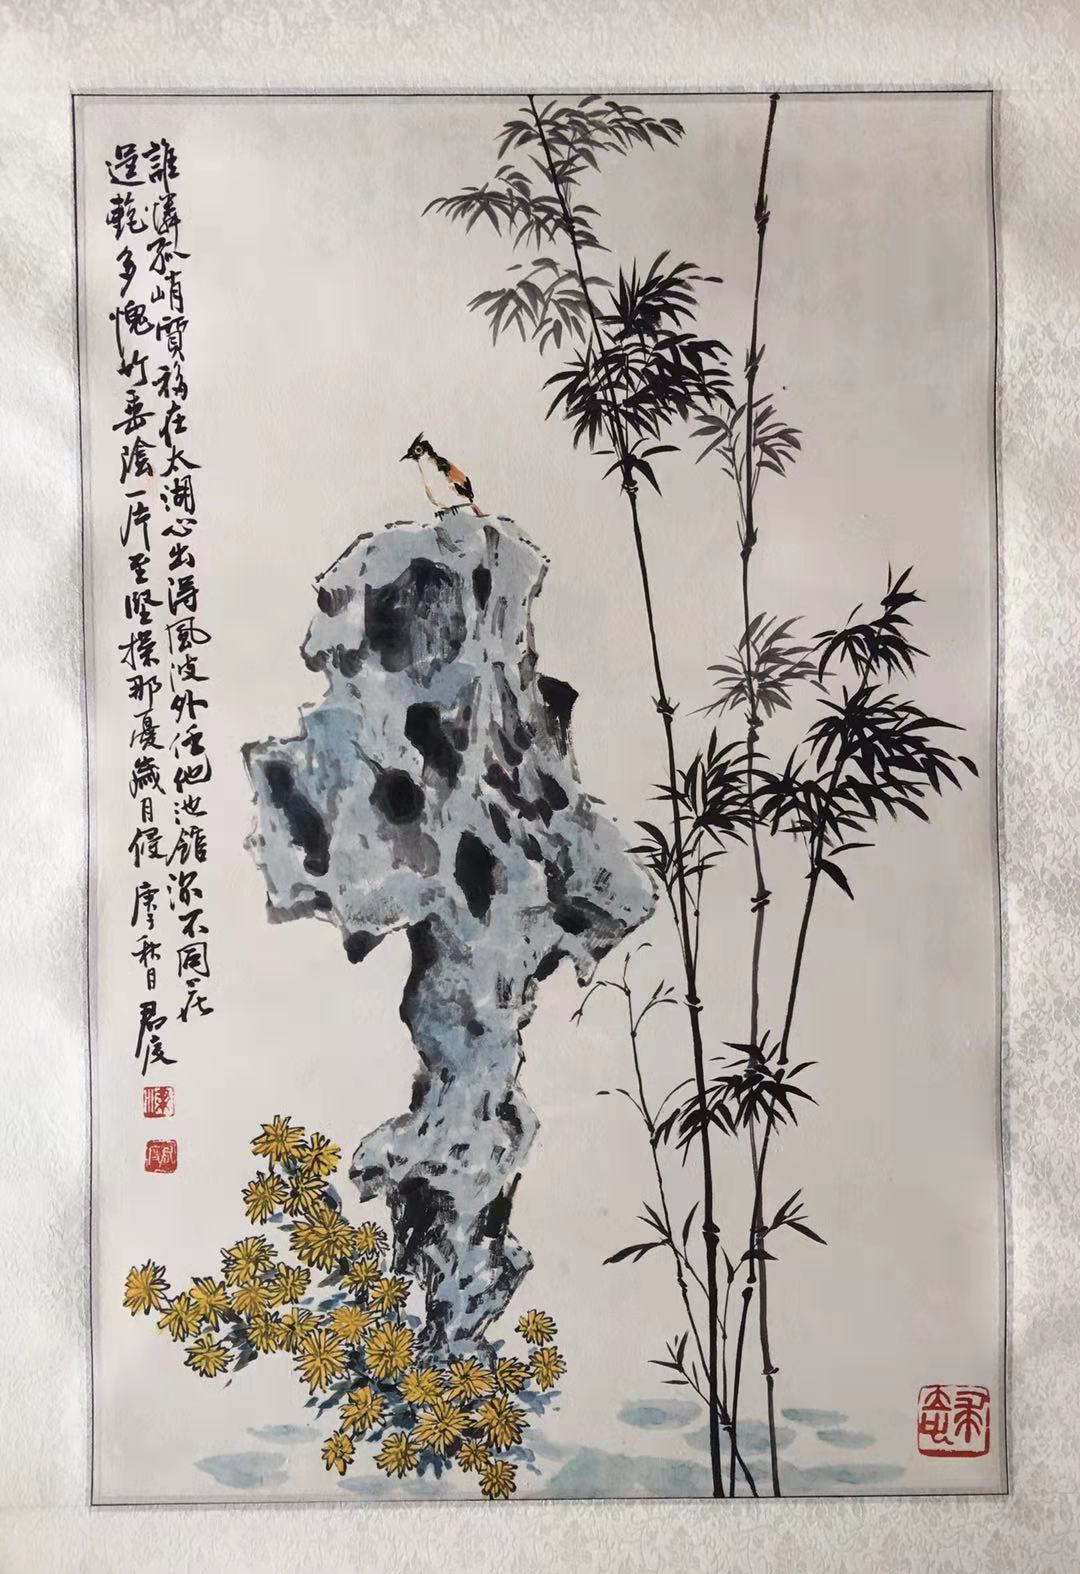 誰憐孤峭質移在太湖心出得風波外任他池館深不同花
逞多愧竹垂陰一片至堅操那憂歲月侵 庚子秋日 君度